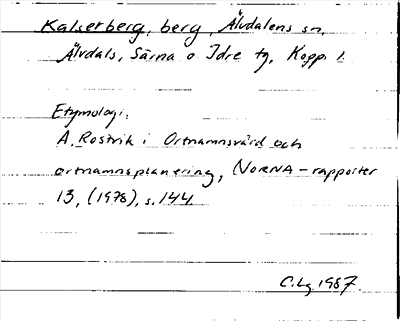 Kalserberg, berg, Älvdalens sn,
Älvdals, Särna o Idre tg, Kopp. l.
Etymologi:
A. Rostvik i Ortnamnsvård och
ortnamnsplanering, NORNA-rapporter
13, (1978), s. 144.
C.Lg. 1987.